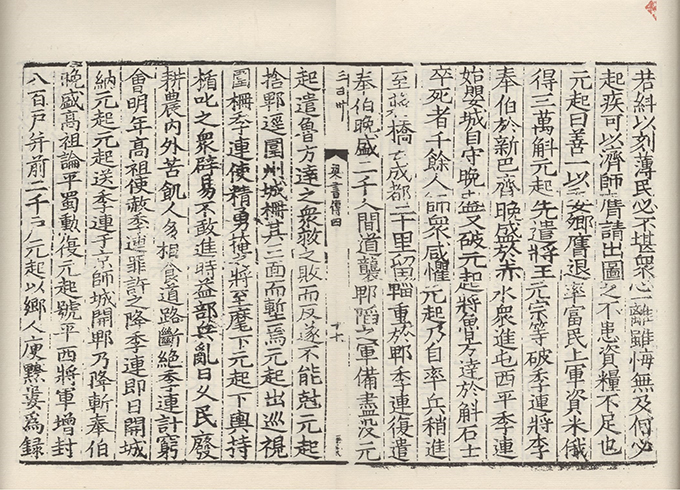 若糾以刻薄民必不堪衆心一離雖悔無及何必
起疾可以濟師膺請出圖之不患資糧不足也
元起曰善一以委卿膺退率富民上軍資米俄
得三萬斛元起先遣將王元宗等破季連將李
奉伯於新巴齊晚盛於赤水衆進屯西平季連
始嬰城自守晚盛又破元起將魯方達於斛石士
卒死者千餘人師衆咸懼元起乃自率兵稍進
至蔣橋去成都二十里留輜重於郫季連復遣
奉伯晚盛二千人間道襲郫陷之軍備盡沒元
梁書傳四
起遣魯方達之衆救之敗而反遂不能尅元起
捨郫逕圍州城柵其三面而塹焉元起出巡視
圍柵季連使精勇掩之將至麾下元起下輿持
楯叱之衆辟易不敢進時益部兵亂日久民廢
耕農內外苦飢人多相食道路斷絕季連計窮
會明年高祖使赦季連罪許之降季連即日開城
納元起元起送季連于京師城開郫乃降斬奉伯
晚盛高祖論平蜀勳復元起號平西將軍增封
八百戶并前二千戶元起以鄉人庾黔婁爲錄